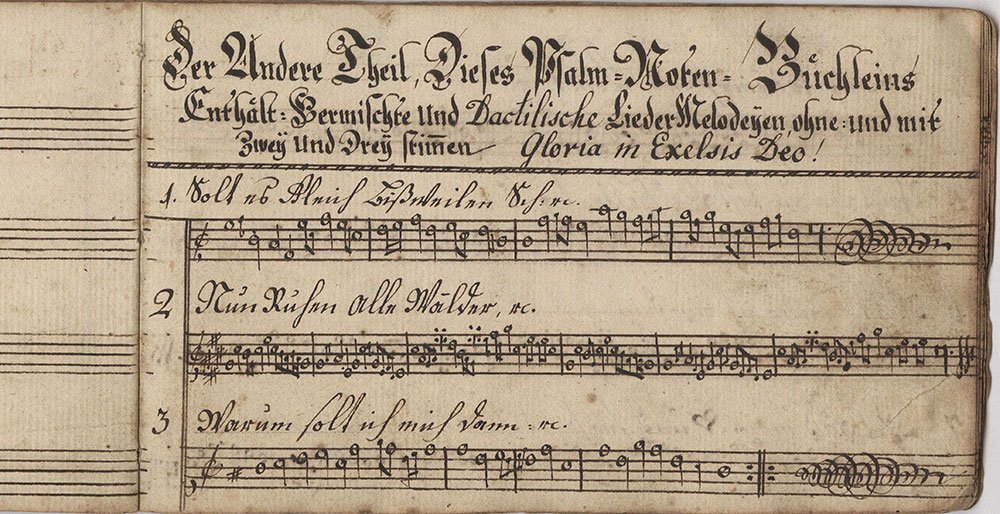 Der Andere Theil, Dieses Psalm=Noten=Büchleins
Enthält: Vermischte Und Dactilische Lieder Melodeÿen, ohne: und mit
Zweÿ Und Dreÿ stim̄en Gloria in Exelsis Deo!
1. Solt es Gleich Bißweilen Sch: ꝛc.
2 Nun Ruhen Alle Wälder, ꝛc.
3 Warum solt ich mich dann: ꝛc.